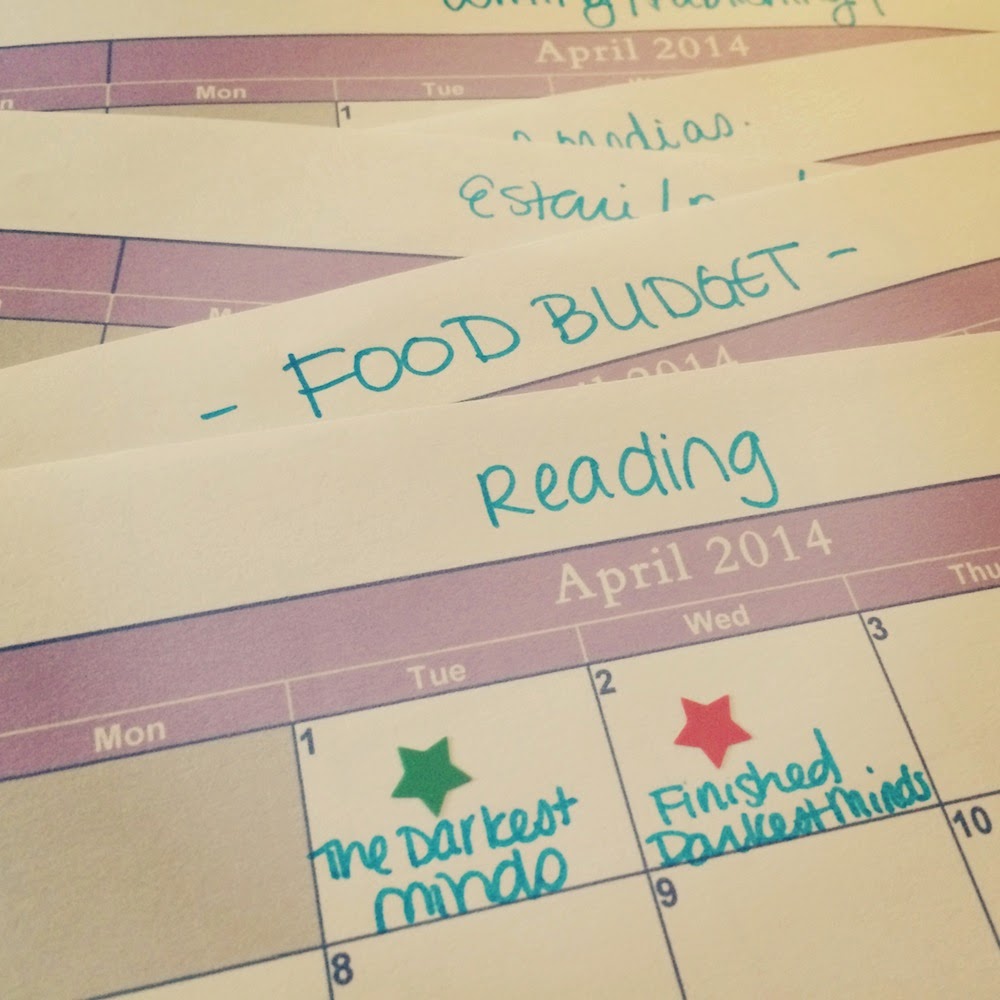 April 2014
Mon Tue
1
- FOOD BUDGET -
2014
Reading
April 2014
Mon Tue Wed Thu
1 2 3
The Darkest
Minds
Finished
Darkest Minds
8 9 10